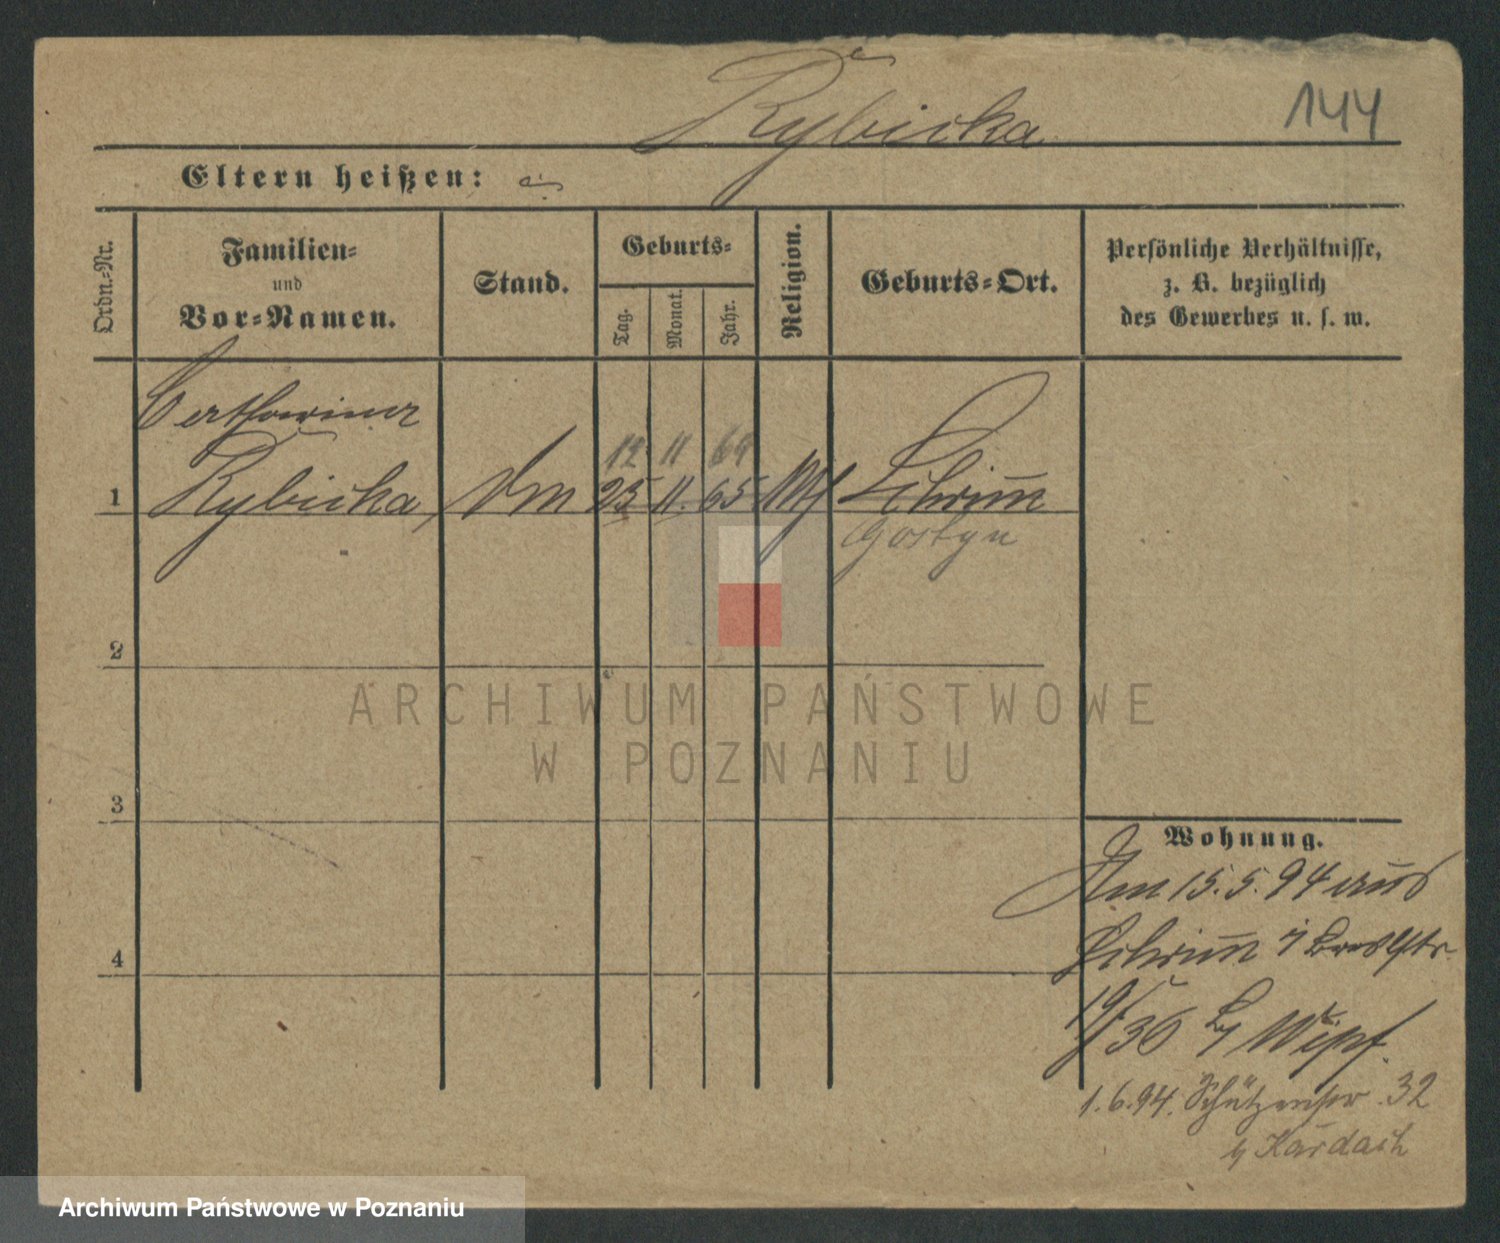 Rybicka
144
Eltern heißen:
Ordn.-Nr.
Familien-
und
Vor-Namen.
Stand.
Geburts-
Tag.
Monat.
Jahr.
Religion.
Geburts-Ort.
Persönliche Verhältnisse,
z. B. bezüglich
des Gewerbes u. s. w.
Catharina
12 11 64
1 Rybicka, 25 11. 65 Schrimm
Gostyn
2
3
4
ARCHIWUM PAŃSTWOWE
W POZNANIU
Wohnung.
Am 15.5.94 aus
Schrimm
19/5 36
1.6.94. Schützenstr. 32
Archiwum Państwowe w Poznaniu